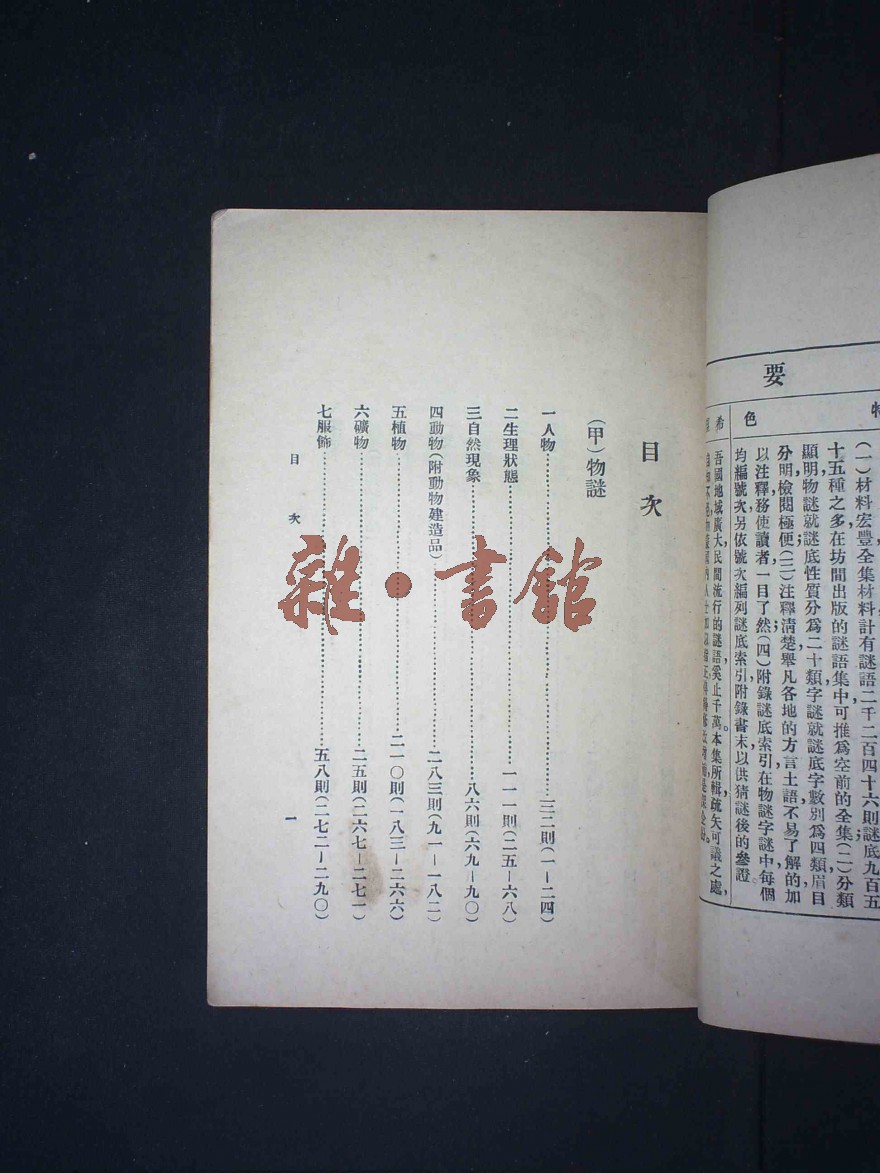 要
特
色
(一)材料宏豐全集材料計有謎語二千二百四十六則謎底九百五
十五種之多在坊間出版的謎語集中可推爲空前的全集(二)分類
顯明物謎就謎底性質分爲二十類字謎就謎底字數別爲四類眉目
分明檢閱極便(三)注釋清楚舉凡各地的方言土語不易了解的加
以注釋務使讀者一目了然(四)附錄謎底索引在物謎字謎中每個
均編號次另依號次編列謎底索引附錄書末以供猜謎後的參證
希
吾國地域廣大民間流行的謎語奚止千萬本集所輯疏矣可議之處,
目次
(甲)物謎
一人物…………三三則(一—二四)
二生理狀態…………一一一則(二五—六八)
三自然現象…………八六則(六九—九〇)
四動物(附動物建造品)…………二八三則(九一—一八二)
五植物…………二一〇則(一八三—二六六)
六礦物…………二五則(二六七—二七一)
七服飾…………五八則(二七二—二九〇)
目次
一
雜·書館